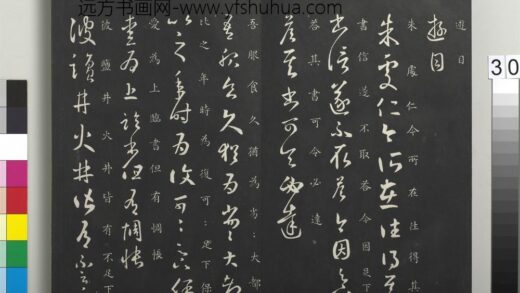 远方书画网- www.yfshuhua.com
30
遊目
遊目
朱處仁今所在往得其
朱處仁今所在往得其
書信遂不取答今因足下
書信遂不取答今因足
答其書可令必達
答其書可令必達
吾服食久猶為劣:大都
吾服食久猶為劣:大都
比之年時為復可:足下保
比之年時為復可:足下保
愛為上臨書但有惆悵
愛為上臨書但有惆悵
彼鹽井火井皆有不足下
彼鹽井火井皆有不